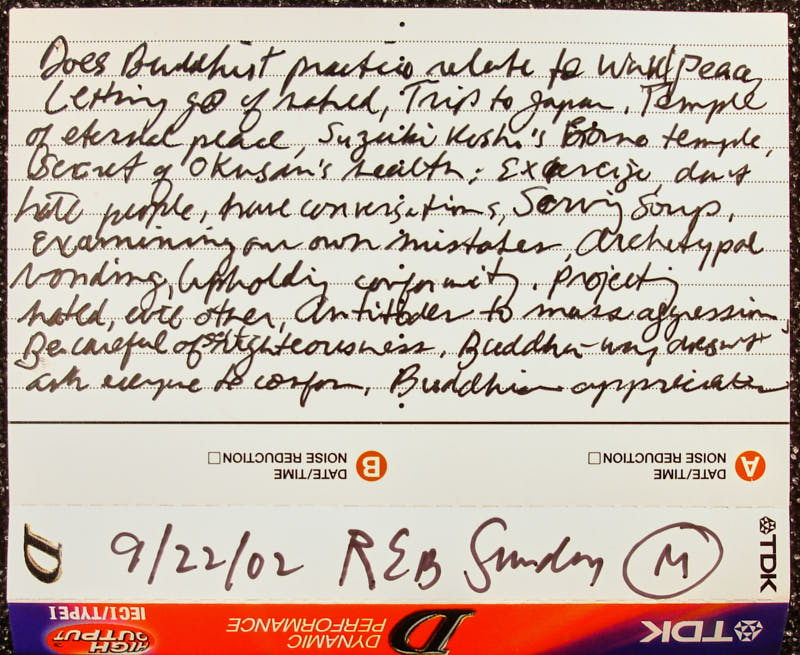 Does Buddhist practice relate to World Peace,
Letting go of hatred, Trip to Japan, Temple
of eternal peace, Suzuki Roshi's temple,
Secret of Okusan's health; Exercise, don't
hate people, have conversations, Serving Soup,
examining our own mistakes, Archetypal
bonding, Upholding conformity. Projecting
hatred, evil other, Antitodes to mass aggression,
Be careful of righteousness, Buddha-way doesn't
ask everyone to conform, Buddhism appreciates
B DATE/TIME NOISE REDUCTION
A DATE/TIME NOISE REDUCTION
9/22/02 REB Sunday M
D
TDK
HIGH OUTPUT IECI/TYPEI
DYNAMIC PERFORMANCE
D
TDK